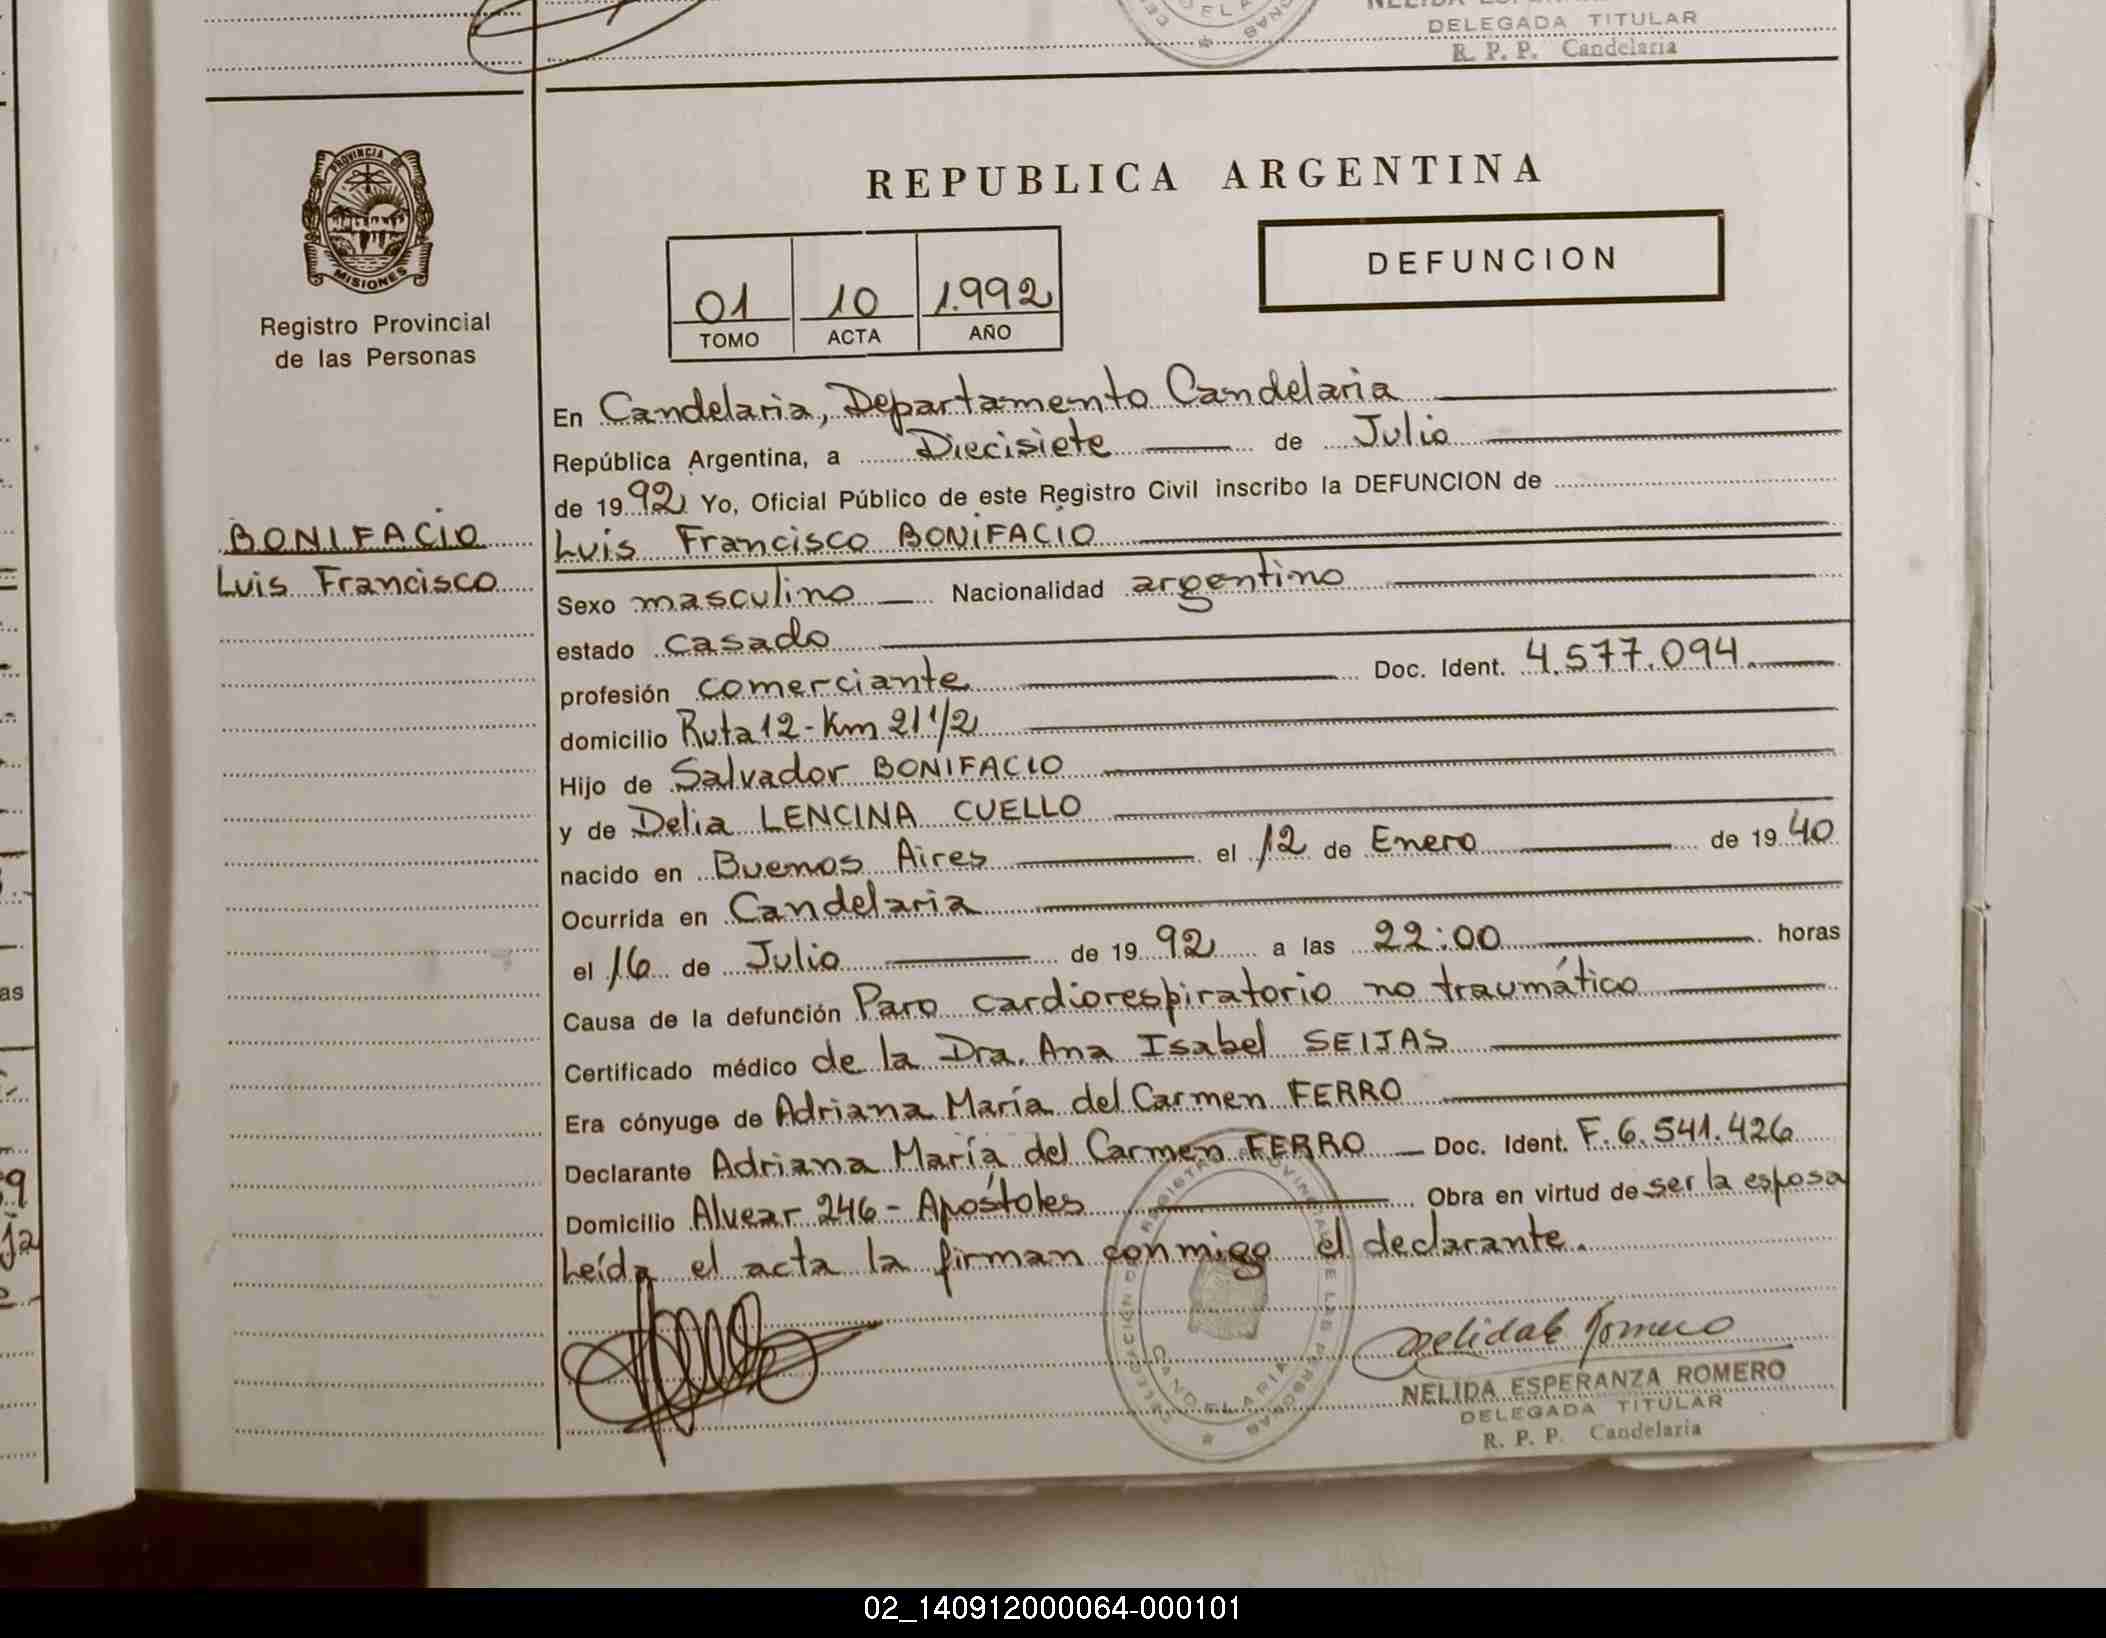 DELEGADA TITULAR
R. P. P. Candelaria
PROVINCIA DE
MISIONES
Registro Provincial
de las Personas
REPUBLICA ARGENTINA
DEFUNCION
01 10 1.992
TOMO ACTA AÑO
En Candelaria, Departamento Candelaria
República Argentina, a Diecisiete de Julio
de 1992 Yo, Oficial Público de este Registro Civil inscribo la DEFUNCION de
BONIFACIO
Luis Francisco
Luis Francisco BONIFACIO
Sexo masculino Nacionalidad argentino
estado casado
profesión comerciante Doc. Ident. 4.577.094.
domicilio Ruta 12 - Km 21 1/2
Hijo de Salvador BONIFACIO
y de Delia LENCINA CUELLO
nacido en Buenos Aires el 12 de Enero de 1940
Ocurrida en Candelaria
el 16 de Julio de 1992 a las 22:00 horas
Causa de la defunción Paro cardiorespiratorio no traumático
Certificado médico de la Dra. Ana Isabel SEIJAS
Era cónyuge de Adriana María del Carmen FERRO
Declarante Adriana María del Carmen FERRO Doc. Ident. F. 6.541.426
Domicilio Alvear 246 - Apóstoles Obra en virtud de ser la esposa
Leída el acta la firman conmigo el declarante.
CANDELARIA
NELIDA ESPERANZA ROMERO
DELEGADA TITULAR
R. P. P. Candelaria
02_140912000064-000101